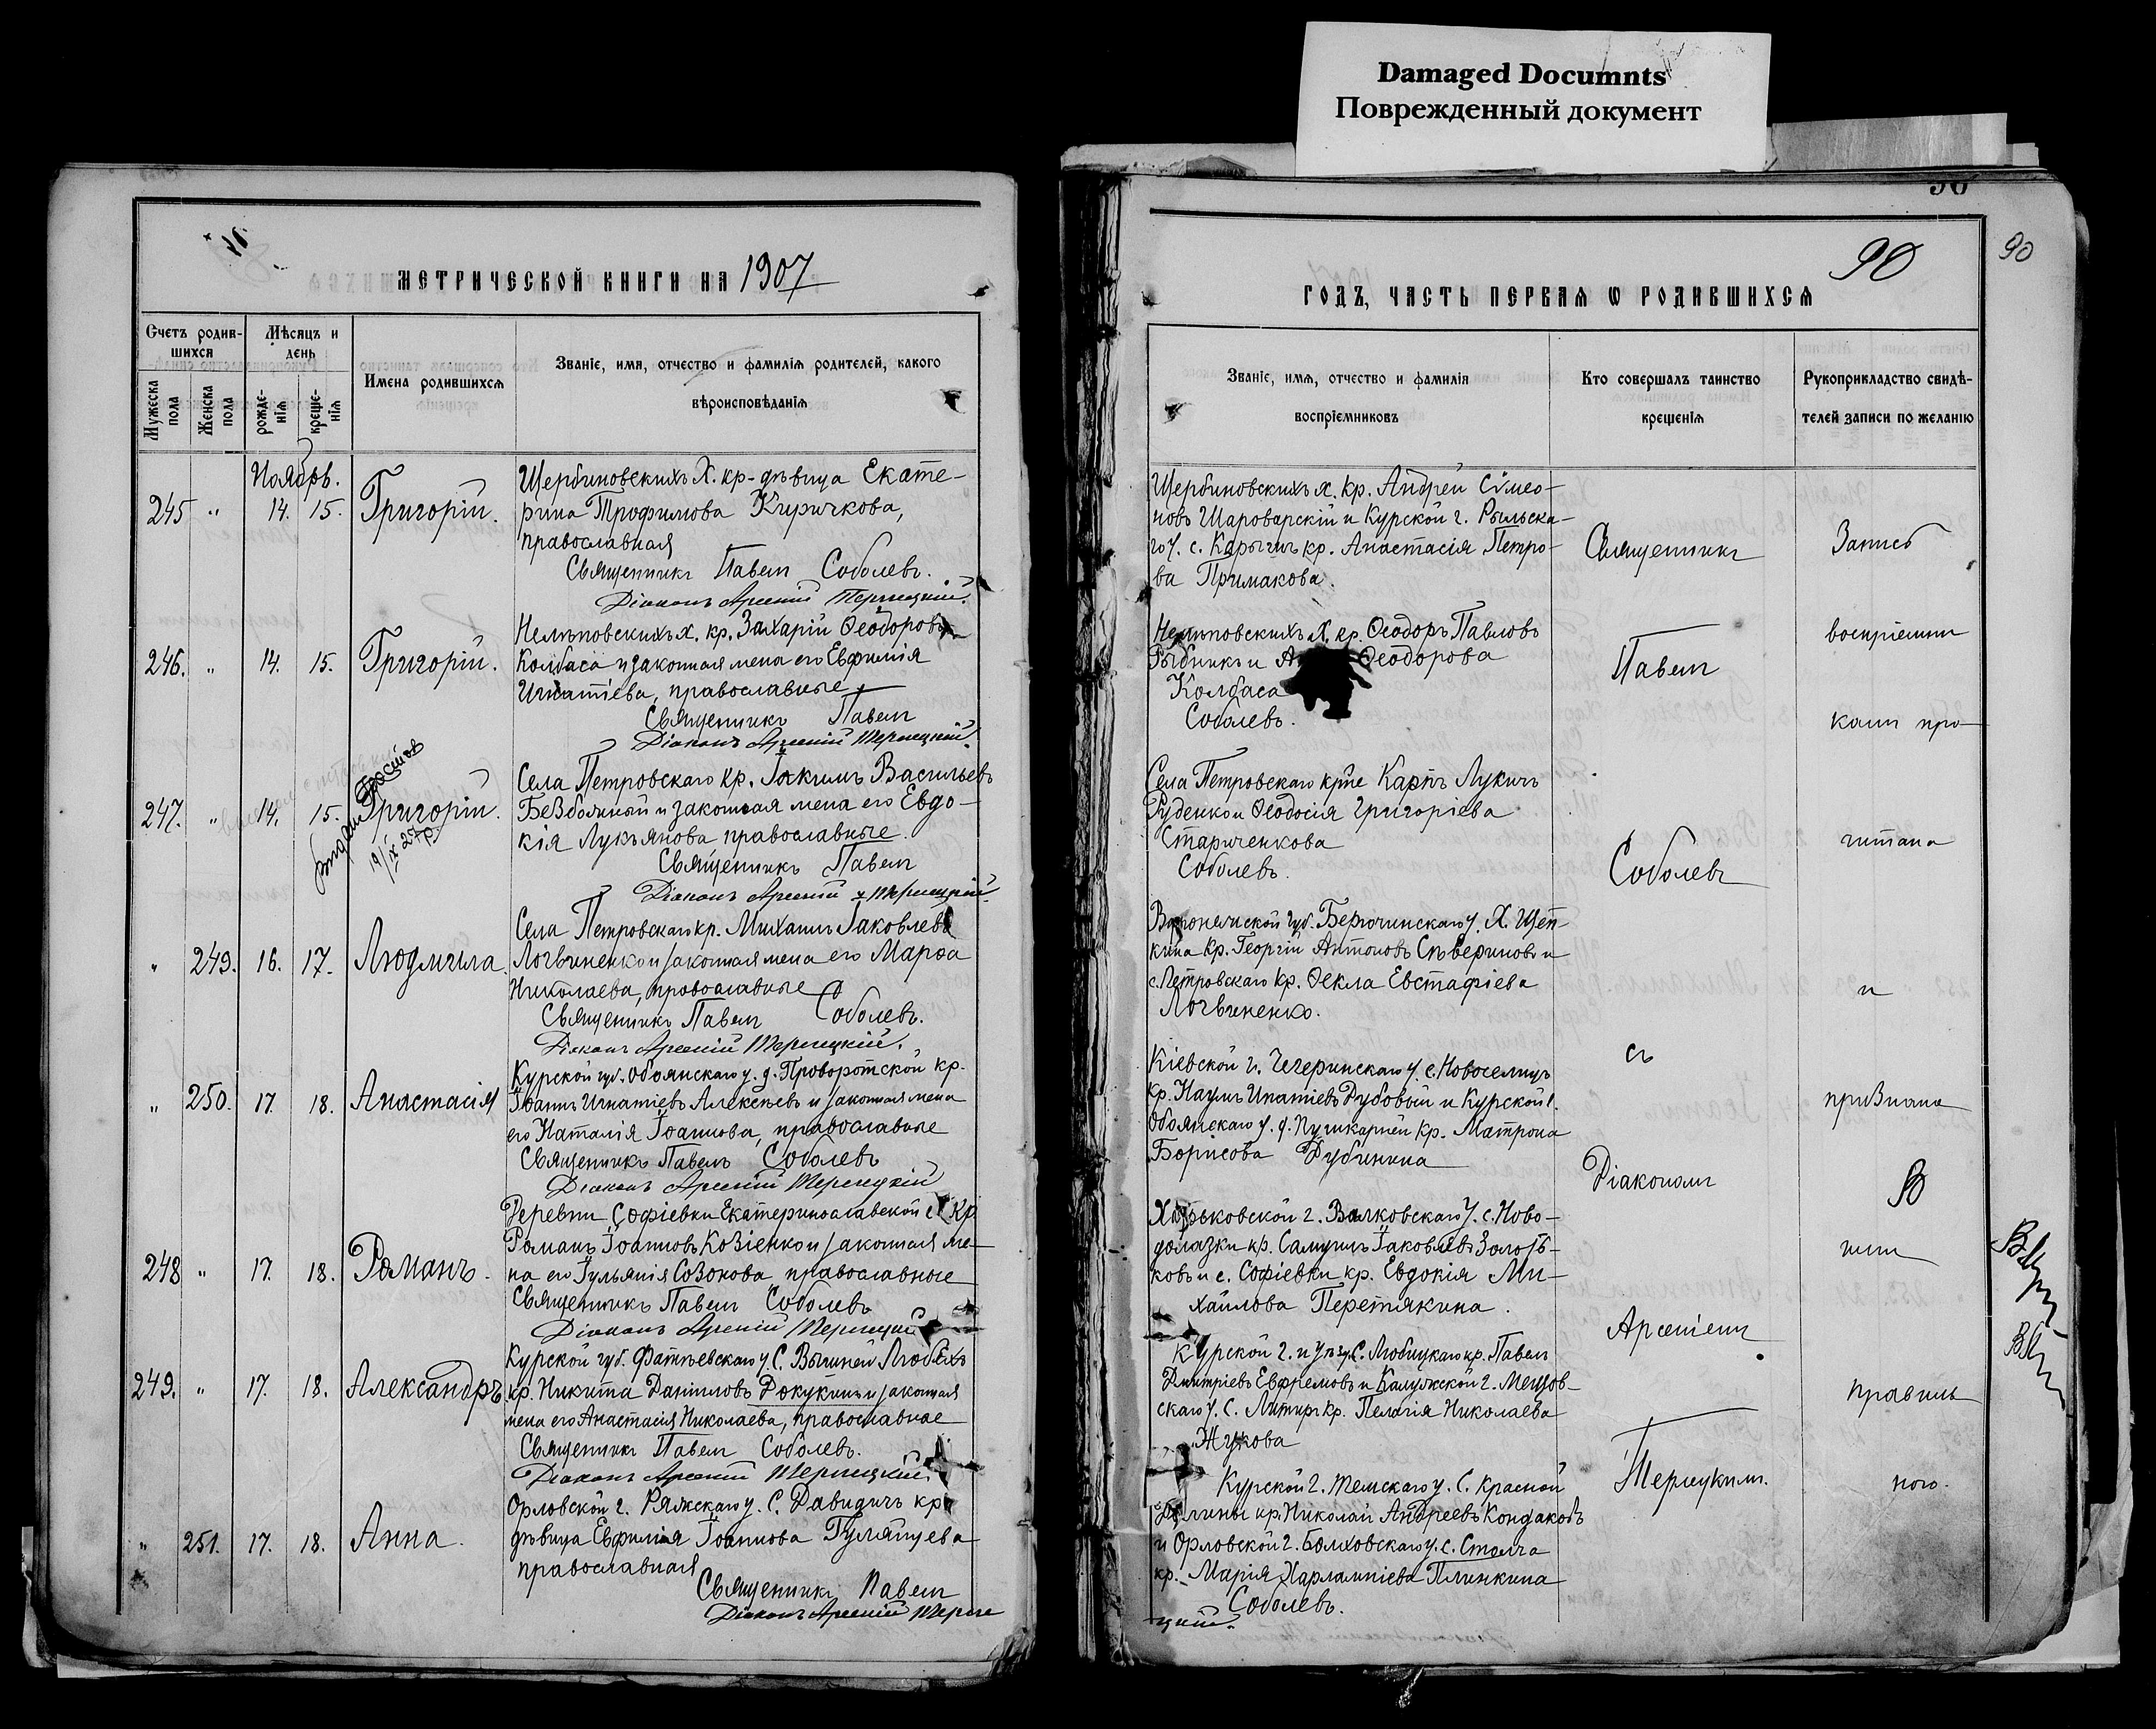 Damaged Documnts
Поврежденный документ
90
МЕТРИЧЕСКОЙ КНИГИ НА 1907
Счетъ родив-
шихся
Мѣсяцъ и
день
Мужеска пола
Женска пола
рожде-
нія
креще-
нія
Имена родившихся
Званіе, имя, отчество и фамилія родителей, какого
вѣроисповѣданія
Ноябрь.
245 " 14. 15. Григорій.
Щербиновскихъ Х. кр-дѣвица Екате-
рина Трофимова Киричкова,
православная
Священникъ Павелъ Соболевъ.
Діаконъ Арсеній Терлецкій.
246. " 14. 15. Григорій.
Нелѣповскихъ х. кр. Захарій Ѳеодоровъ
Колбаса и законная жена его Евфимія
Игнатіева, православные
Священникъ Павелъ
Діаконъ Арсеній Терлецкій.
247. " 14. 15. Григорій.
19/IX 27 р.
Села Петровскаго кр. Іакимъ Васильевъ
Безбольный и законная жена его Евдо-
кія Лукьянова православные.
Священникъ Павелъ
Діаконъ Арсеній Терлецкій.
" 249. 16. 17. Людмила.
Села Петровскаго кр. Михаилъ Іаковлевъ
Логвиненко и законная жена его Марѳа
Николаева, православные
Священникъ Павелъ Соболевъ.
Діаконъ Арсеній Терлецкій.
" 250. 17. 18. Анастасія
Курской губ. Обоянскаго у. д. Проворотской кр.
Іоаннъ Игнатіевъ Алексѣевъ и законная жена
его Наталія Іоаннова, православные
Священникъ Павелъ Соболевъ
Діаконъ Арсеній Терлецкій
248 " 17. 18. Романъ.
Деревни Софіевки Екатеринославской г. кр
Романъ Іоанновъ Козіенко и законная же-
на его Іуліанія Созонова православные
Священникъ Павелъ Соболевъ
Діаконъ Арсеній Терлецкій
249. " 17. 18. Александръ
Курской губ. Фатежевскаго у. С. Вышней Любажъ
кр. Никита Даніиловъ Докукинъ и законная
жена его Анастасія Николаева, православные
Священникъ Павелъ Соболевъ.
Діаконъ Арсеній Терлецкій.
" 251. 17. 18. Анна.
Орловской г. Ряжскаго у. С. Давидичъ кр
дѣвица Евфимія Іоаннова Гулянцева
православная
Священникъ Павелъ
Діаконъ Арсеній Терле
90
90
ГОДЪ, ЧАСТЬ ПЕРВАЯ Ѡ РОДИВШИХСЯ
Званіе, имя, отчество и фамилія
воспріемниковъ
Кто совершалъ таинство
крещенія
Рукоприкладство свидѣ-
телей записи по желанію
Щербиновскихъ х. кр. Андрей Сѵмео-
новъ Шароварскій и Курской г. Рыльска-
го у. с. Карыжъ кр. Анастасія Петро-
ва Примакова.
Нелѣповскихъ Х. кр. Ѳеодоръ Павловъ
Рыбникъ и Ѳеодорова
Колбаса
Соболевъ.
Села Петровскаго крне Карпъ Лукичъ
Руденко и Ѳеодосія Григоріева
Стариченкова
Соболевъ.
Воронежской губ. Берючинскаго у. Х. Щеп-
кина кр. Георгій Антоновъ Сѣвериновъ и
с. Петровскаго кр. Ѳекла Евстафіева
Логвиненко.
Кіевской г. Чегеринскаго у. с. Новоселицъ
кр. Наумъ Игнатіевъ Дубовый и Курской г.
Обоянскаго у. д. Пушкарней кр. Матрона
Борисова Дубинина
Харьковской г. Валковскаго у. с. Ново-
долазки кр. Самуилъ Іаковлевъ Золотѣ-
ковъ и с. Софіевки кр. Евдокія Ми-
хайлова Перетякина.
Курской г. и уѣзд. С. Любицкаго кр. Павелъ
Димитріевъ Ефремовъ и Калужской г. Мещов-
скаго у. С. кр. Пелагія Николаева
Жукова
Курской г. Темскаго у. С. Красной
Долины кр. Николай Андреевъ Кондаковъ
и Орловской г. Болховскаго у. с. Столча
кр. Марія Харлампіева Плинкина
Соболевъ.
цкій.
Священникъ
Павелъ
Соболевъ
съ
Діакономъ
Арсеніемъ
Терлецкимъ.
Запись
воспріемни
ками про-
читана
и
признана
ими
правиль
ного.